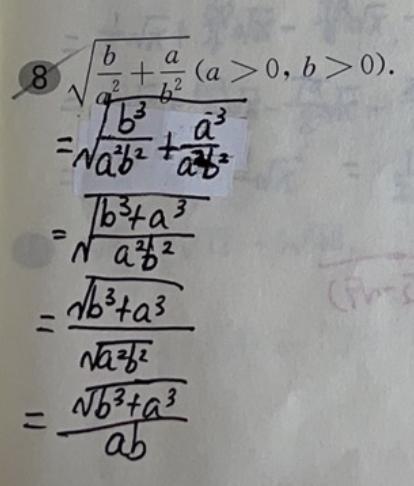 8 √(b/a² + a/b²) (a > 0, b > 0).
= √(b³/a²b² + a³/a²b²)
= √((b³+a³)/a²b²)
= √(b³+a³)/√(a²b²)
= √(b³+a³)/ab